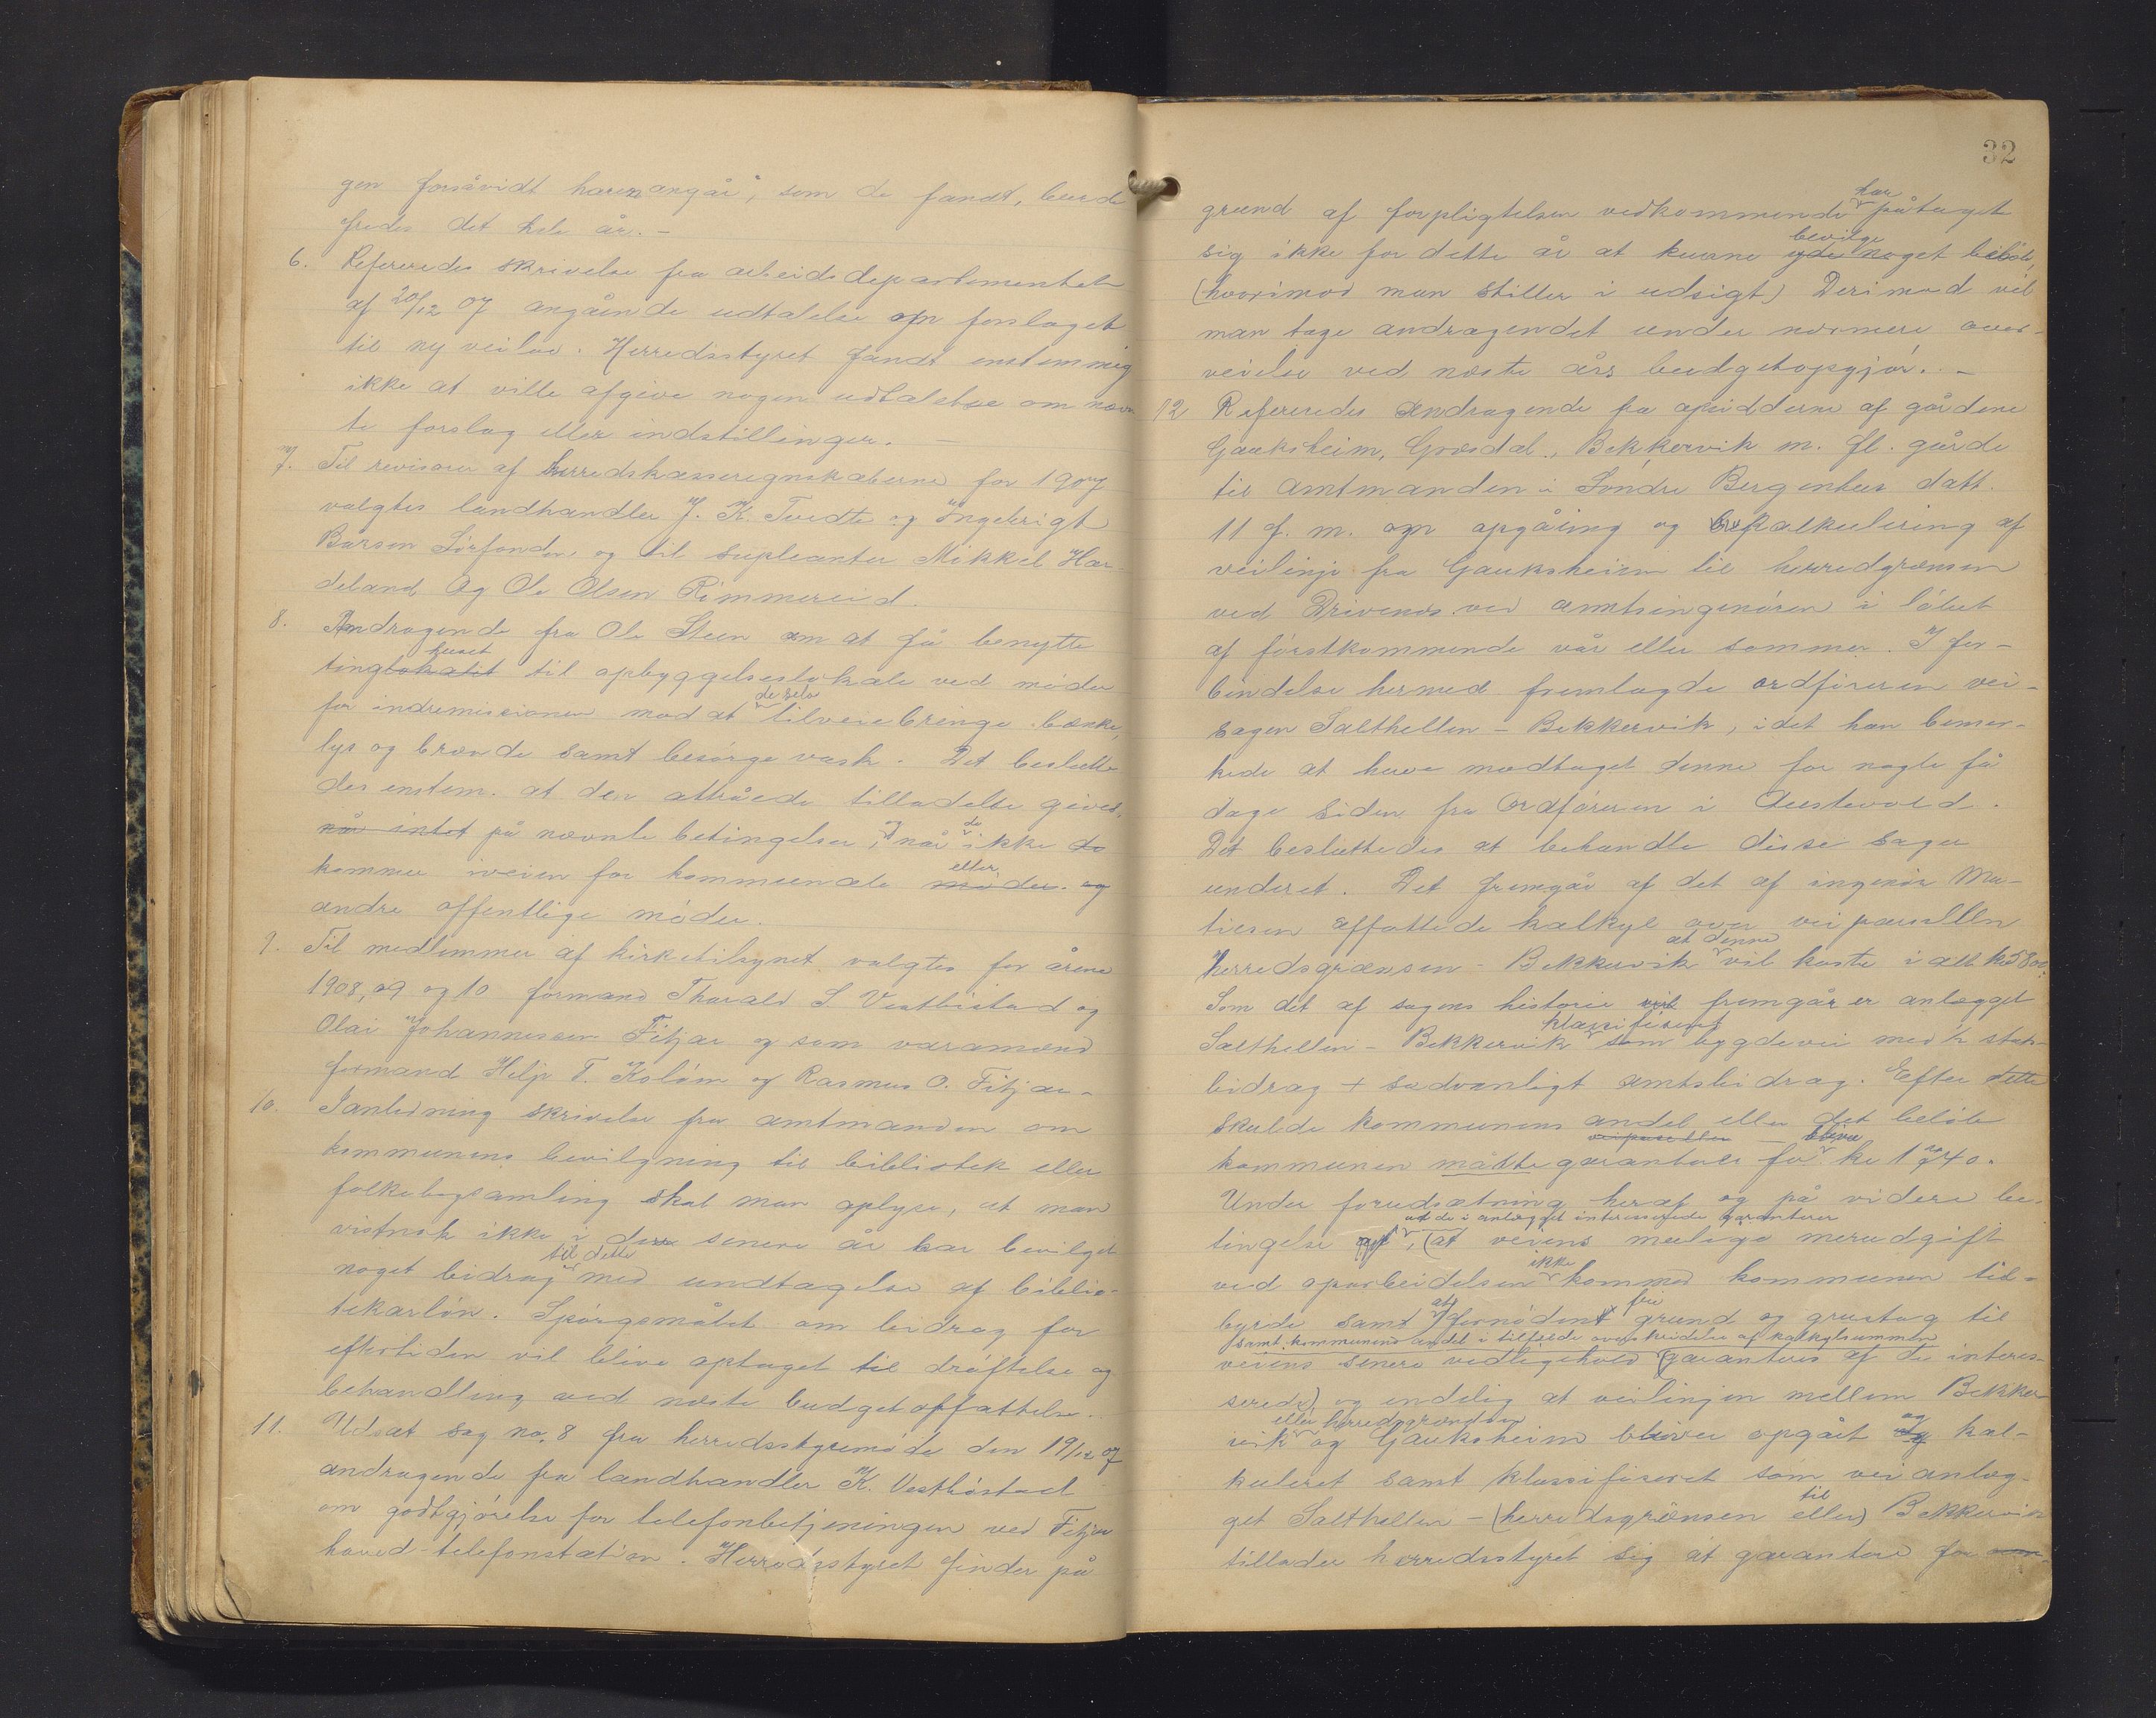 gen forsåvidt haren angår", som de fandt, burde
fredes det hele år. -
6. Refereredes skrivelse fra arbeidsdepartementet
af 20/12 07 angående udtalelse om forslaget
til ny veilov. Herredsstyret fandt enstemmig
ikke at ville afgive nogen udtalelse om nævn
te forslag eller indstillinger. -
7. Til revisorer af herredskasseregnskaberne for 1907
valgtes landhandler J. K. Tvedte og Ingebrigt
Larsen Sörfonden og til supleanter Mikkel Hav-
deland Og Ole Olsen Rimmereid.
8. Andragende fra Ole Steen om at få benytte
huset
tinglokalet til opbyggelseslokale ved möder
de selv
for indremissionen mod at tilveiebringe bænke,
lys og brænde samt besörge vask. Det beslutte
des enstem. at den attråede tilladelse gives,
og de
når intet på nævnte betingelser, når ikke de
eller
kommer iveien for kommunale möder og
andre offentlige möder.
9. Til medlemmer af kirketilsynet valgtes for årene
1908, 09 og 10 formand Thorald S Vestböstad og
Olai Johannessen Fitjar og som varamænd
formand Helje T. Koløen og Rasmus O. Fitjar -
10. I anledning skrivelse fra amtmanden om
kommunens bevilgning til bibliotek eller
folkebogsamling skal man oplyse, at man
vistnok ikke i de senere år har bevilget
til dette
noget bidrag med undtagelse af biblio-
tekarlön. Spörgsmålet om bidrag for
eftertiden vil blive optaget til dröftelse og
behandling ved næste budgetopfattelse.
11. Udsat sag no. 8 fra herredsstyremöde den 19/12 07
andragende fra landhandler K. Vestböstad
om godtgjörelse for telefonbetjeningen ved Fitjar
hoved-telefonstation. Herredsstyret finder på
32
har
grund af forpligtelser vedkommende påtaget
bevilge
sig ikke for dette år at kunne yde noget belöb,
(hvorimod man stiller i udsigt) Derimod vil
man tage andragendet under nærmere over-
veielse ved næste års budgetopgjör. -
12 Refereredes Andragende fra opsidderne af gårdene
Gauksheim, Grøsdal., Bekkervik m. fl. gårde
til amtmanden i Söndre Bergenhus datt.
11 f. m. om opgåing og kalkulering af
veilinje fra Gauksheim til herredgrænsen
ved Drivenes ved amtsingeniören i löbet
af förstkommende vår eller sommer. I for-
bindelse hermed fremlagde ordföreren vei-
sagen Salthellen - Bekkervik, idet han bemer-
kede at have modtaget denne for nogle få
dage siden fra Ordföreren i Austevold.
Det besluttedes at behandle disse sager
underet. Det fremgår af det af ingeniör Ma-
tiesen affattede kalkyl over veiparsellen
at denne
Herredsgrænsen - Bekkervik vil koste i alt kr 5800.
Som det af sagens historie vil fremgår er anlægget
klassificeret
Salthellen - Bekkervik som bygdevei med ½ stats-
bidrag + sædvanligt amtsbidrag. Efter dette
skulde kommunens andel eller det belöb
veiparsellen - blive
kommunen måtte garantere for kr 1740.
Under forudsætning heraf og på videre be-
at de i anlægget interesserede garanterer
tingelse af, (at veiens mulige merudgift
ikke
ved oparbeidelsen kommer kommunen til-
at fri
byrde samt fornödent grund og grustag til
samt kommunens andel i tilfælde overskridelse af kalkylsummen
veiens senere vedligehold (garanteres af de interes-
serede) og endelig at veilinjen mellem Bekker-
eller herredsgrænden
vik og Gauksheim bliver opgået og kal-
kuleret samt klassificeret som veianlæg-
til
get Salthellen - (herredsgrænsen eller) Bekkervik
tillader herredsstyret sig at garantere for